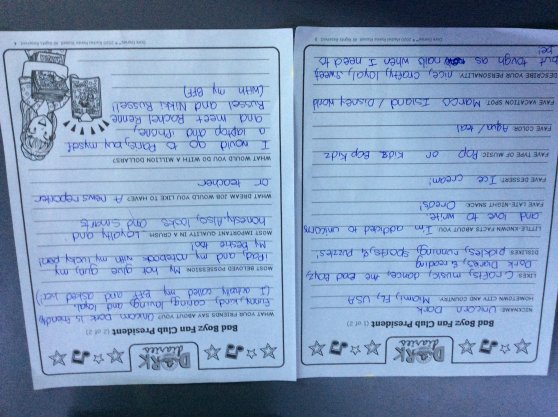 DORK diaries
Bad Boyz Fan Club President (1 of 2)
NICKNAME: Unicorn Dork
HOMETOWN CITY AND COUNTRY: Miami, FL, USA
LIKES: Crafts, music, dance, the Bad Boyz,
Dork Diaries, & reading
DISLIKES: pickles, running, sports, & puzzles!
LITTLE KNOWN FACTS ABOUT YOU: I'm addicted to unicorns
and love to write
FAVE LATE-NIGHT SNACK: Oreos!
FAVE DESSERT: Ice cream!
FAVE TYPE OF MUSIC: Pop or Kidz Bop Kidz
FAVE COLOR: Aqua/teal
FAVE VACATION SPOT: Marco Island / Disney World
DESCRIBE YOUR PERSONALITY: nice, crafty, loyal, sweet,
but tough as nails when I need to
be!
DORK diaries
Bad Boyz Fan Club President (2 of 2)
WHAT YOUR FRIENDS SAY ABOUT YOU? Unicorn Dork is friendly,
funny, kind, caring, loving, and loyal
(I called my BFF and asked her)
MOST BELOVED POSSESSION: My hot glue gun, my
iPad, and my notebook with my lucky pen!
My bestie too!
MOST IMPORTANT QUALITY IN A CRUSH: Loyalty and
honesty. Also, looks and smarts
WHAT DREAM JOB WOULD YOU LIKE TO HAVE? A news reporter
or teacher
WHAT WOULD YOU DO WITH A MILLION DOLLARS?
I would go to Paris, buy myself
a laptop and iPhone,
and meet Rachel Renee
Russel and Nikki Russell!
(with my BFF)